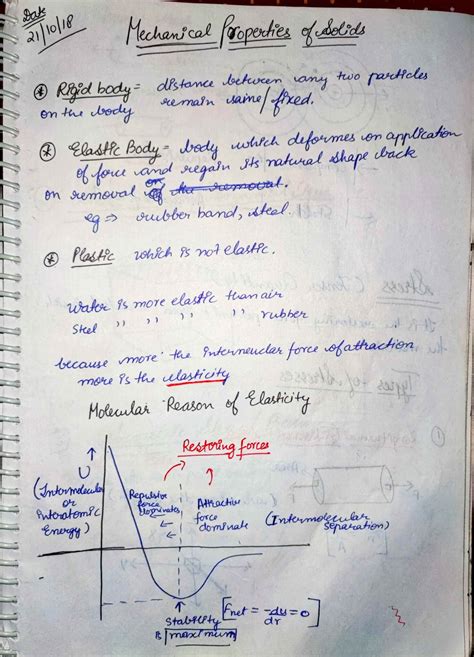 Date
21/10/18
Mechanical Properties of Solids
* Rigid body = distance between any two particles
on the body remain same/fixed.
* Elastic Body = body which deformes on application
of force and regain its natural shape back
on removal of the removal.
eg ⇒ rubber band, steel.
* Plastic which is not elastic.
Water is more elastic than air
Steel " " " " rubber
because more the internuclear force of attraction
more is the elasticity
Molecular Reason of Elasticity
Restoring forces
U
(Intermolecular
or
Interatomic
Energy)
Repulsive
force
dominates
Attractive
force
dominate
(Intermolecular
separation)
Stability
is maximum
[Fnet = -du/dr = 0]